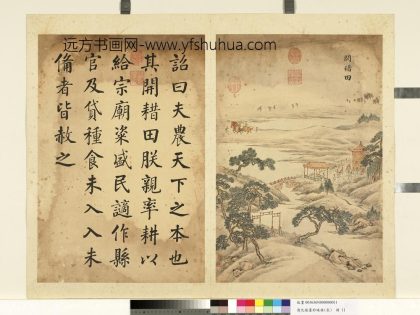 远方书画网- www.yfshuhua.com
開耤田
詔曰夫農天下之本也
其開耤田朕親率耕以
給宗廟粢盛民謫作縣
官及貸種食未入入未
備者皆赦之